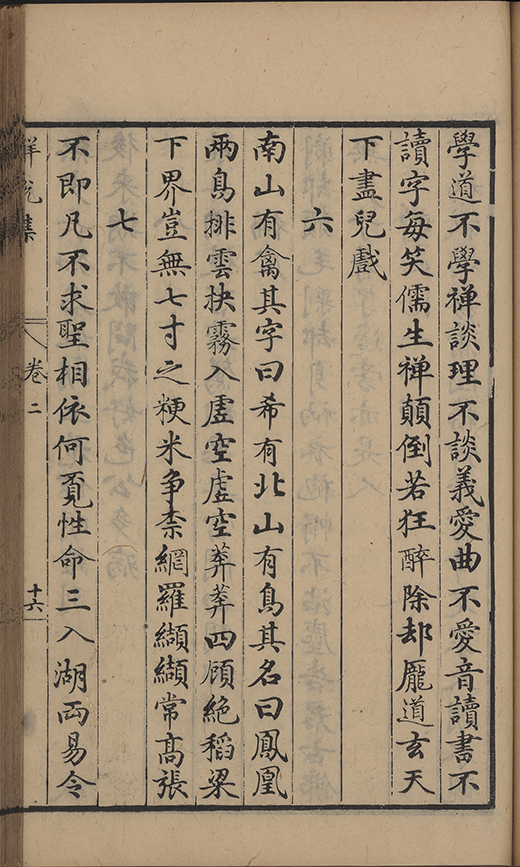 學道不學禅談理不談義愛曲不愛音讀書不
讀字每笑儒生禅顛倒若狂醉除却龎道玄天
下盡兒戲
六
南山有禽其字曰希有北山有鳥其名曰鳳凰
兩鳥排雲抉霧入虛空虛空莽莽四顧絶稻梁
下界豈無七寸之粳米争柰網羅纈纈常髙張
七
不即凡不求聖相依何覓性命三入湖两易令
觧脫集 卷二 十六